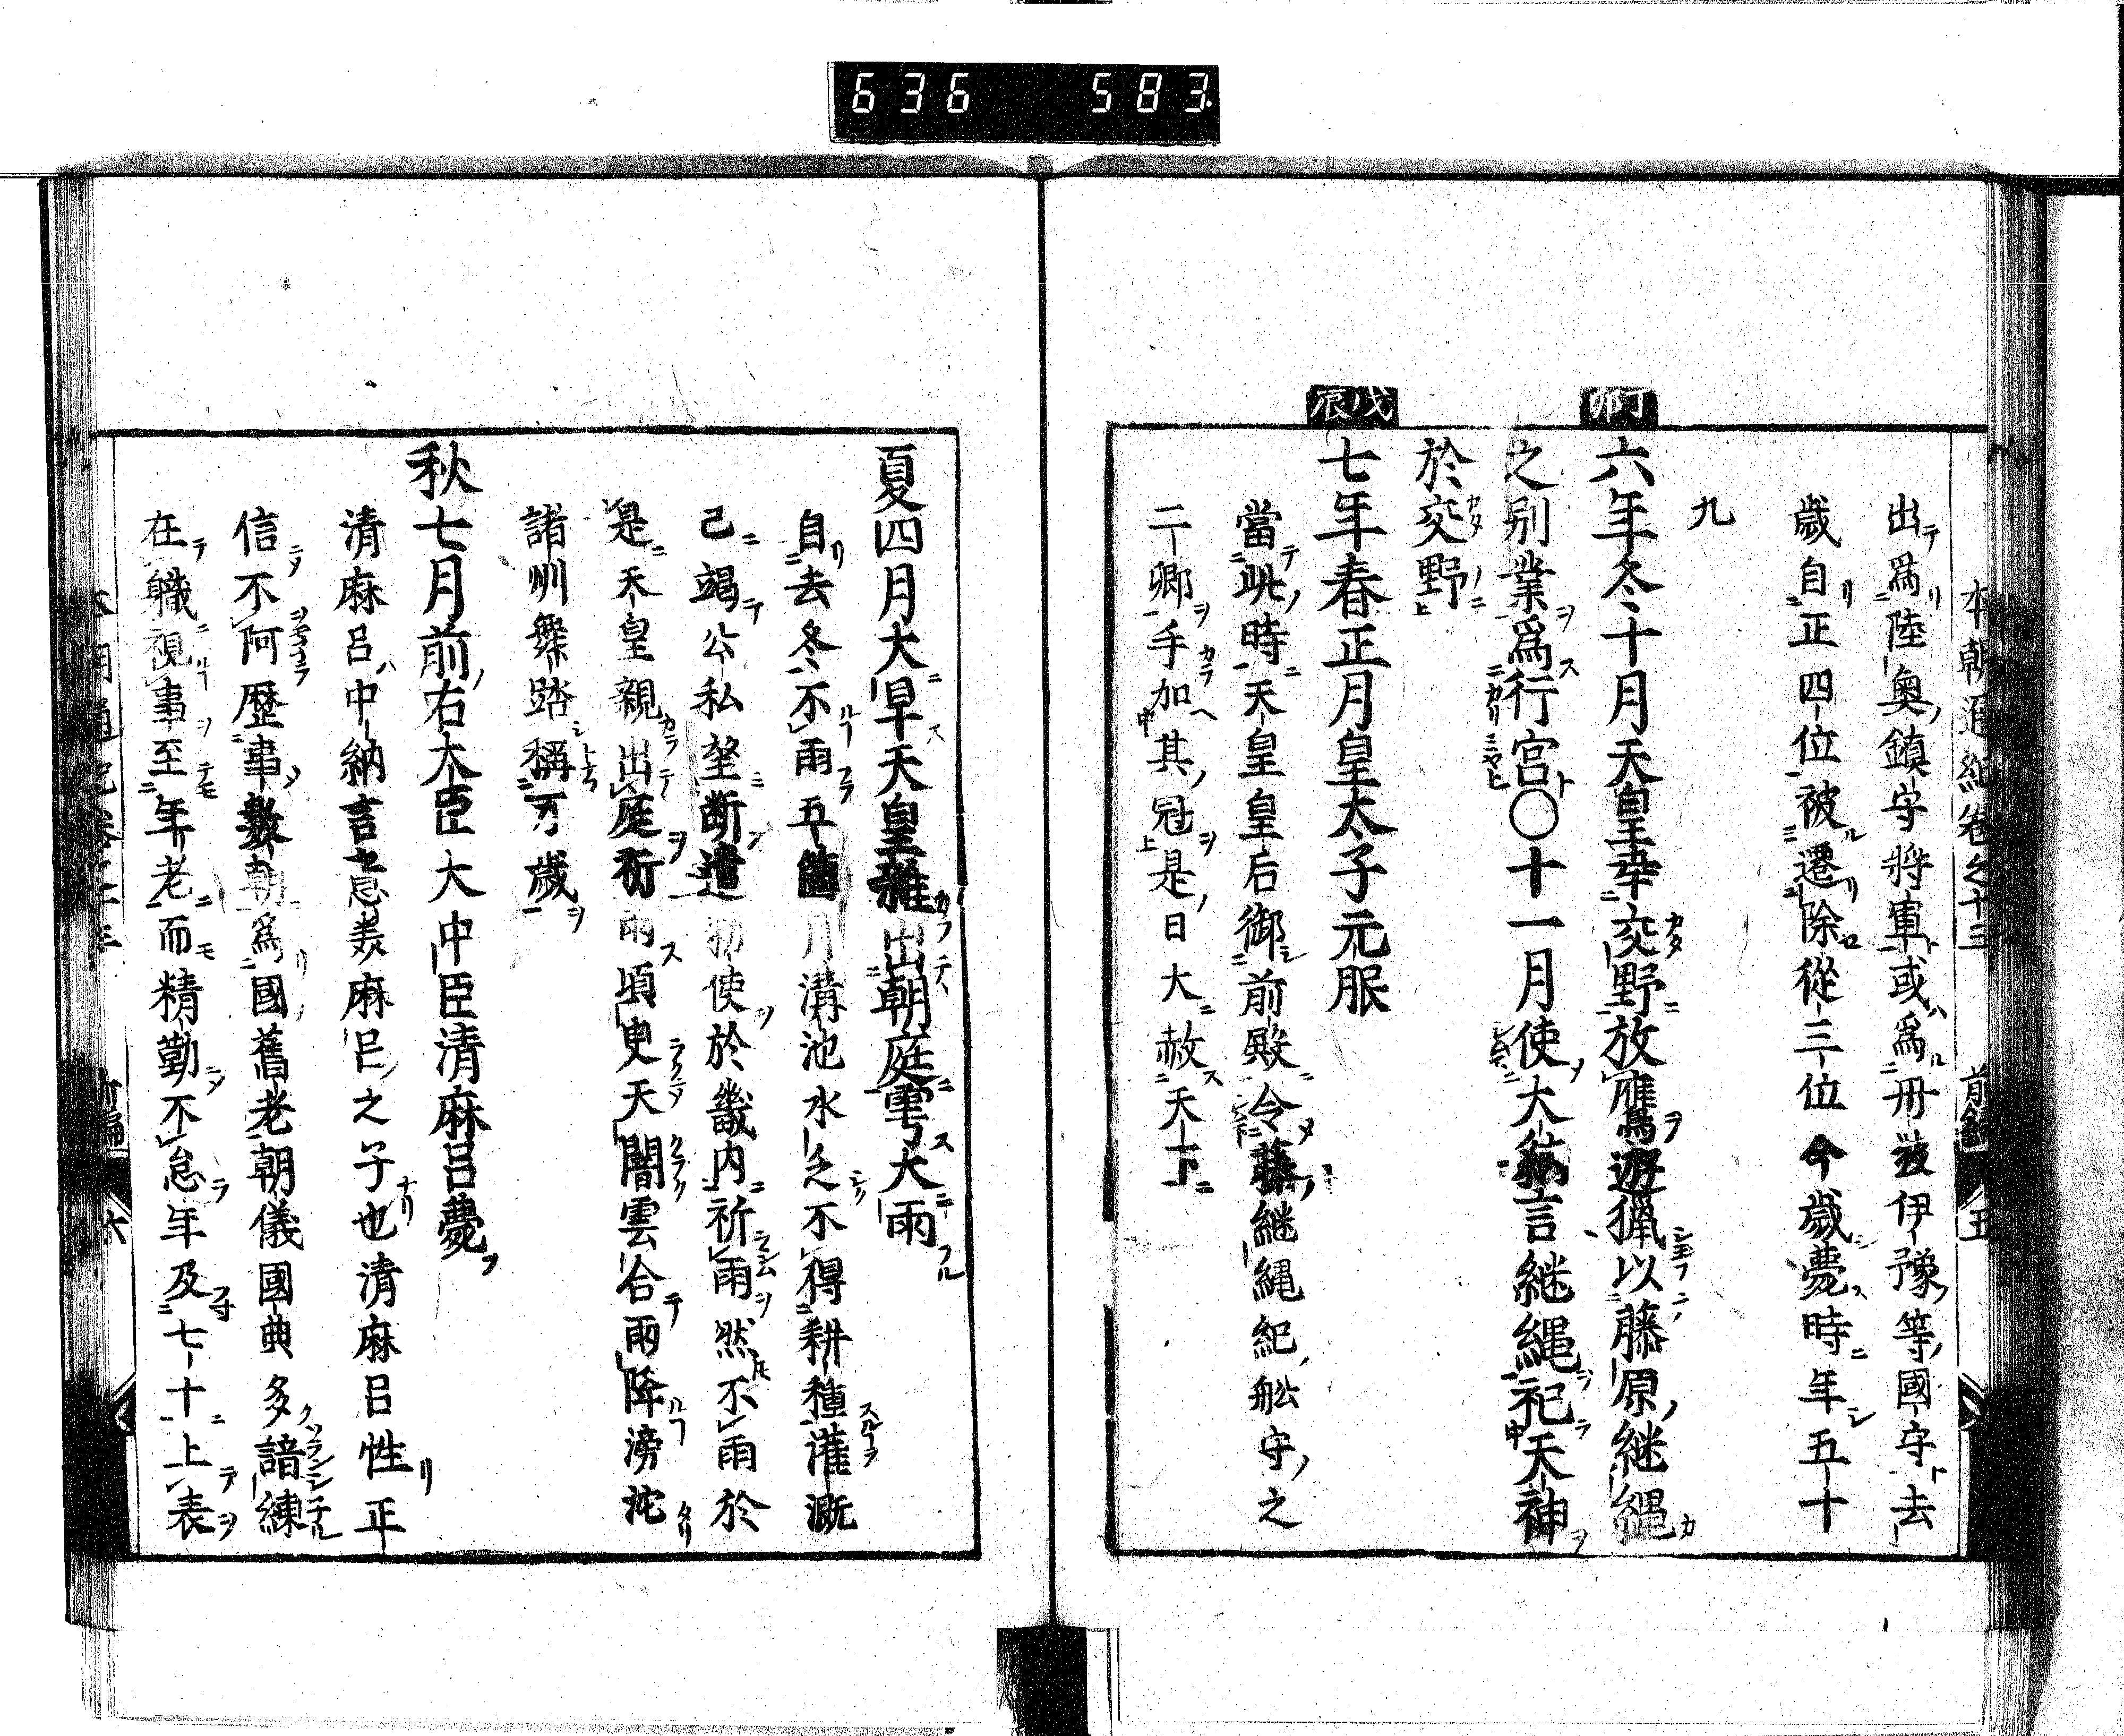 636 583
本朝通紀卷之十三 前編 五
出爲陸奥鎮守將軍或爲丹波伊豫等國守去
歲自正四位被遷除從三位今歲薨時年五十
九
丁卯
六年冬十月天皇幸交野放鷹遊獵以藤原継縄
之别業爲行宮〇十一月使大納言継縄祀天神
於交野
戊辰
七年春正月皇太子元服
當此時天皇皇后御前殿令藤継縄紀舩守之
二卿手加其冠是日大赦天下
夏四月大旱天皇雖出朝庭雩大雨
自去冬不雨五箇月溝池水乏不得耕種灌溉
已竭公私望断遣勅使於畿内祈雨然不雨於
是天皇親出庭祈雨頃臾天闇雲合雨降滂沱
諸州舞踏稱万歲
秋七月前右大臣大中臣清麻呂薨
清麻呂中納言意美麻呂之子也清麻呂性正
信不阿歷事數朝爲國舊老朝儀國典多諳練
在職視事至年老而精勤不怠年及七十上表
六